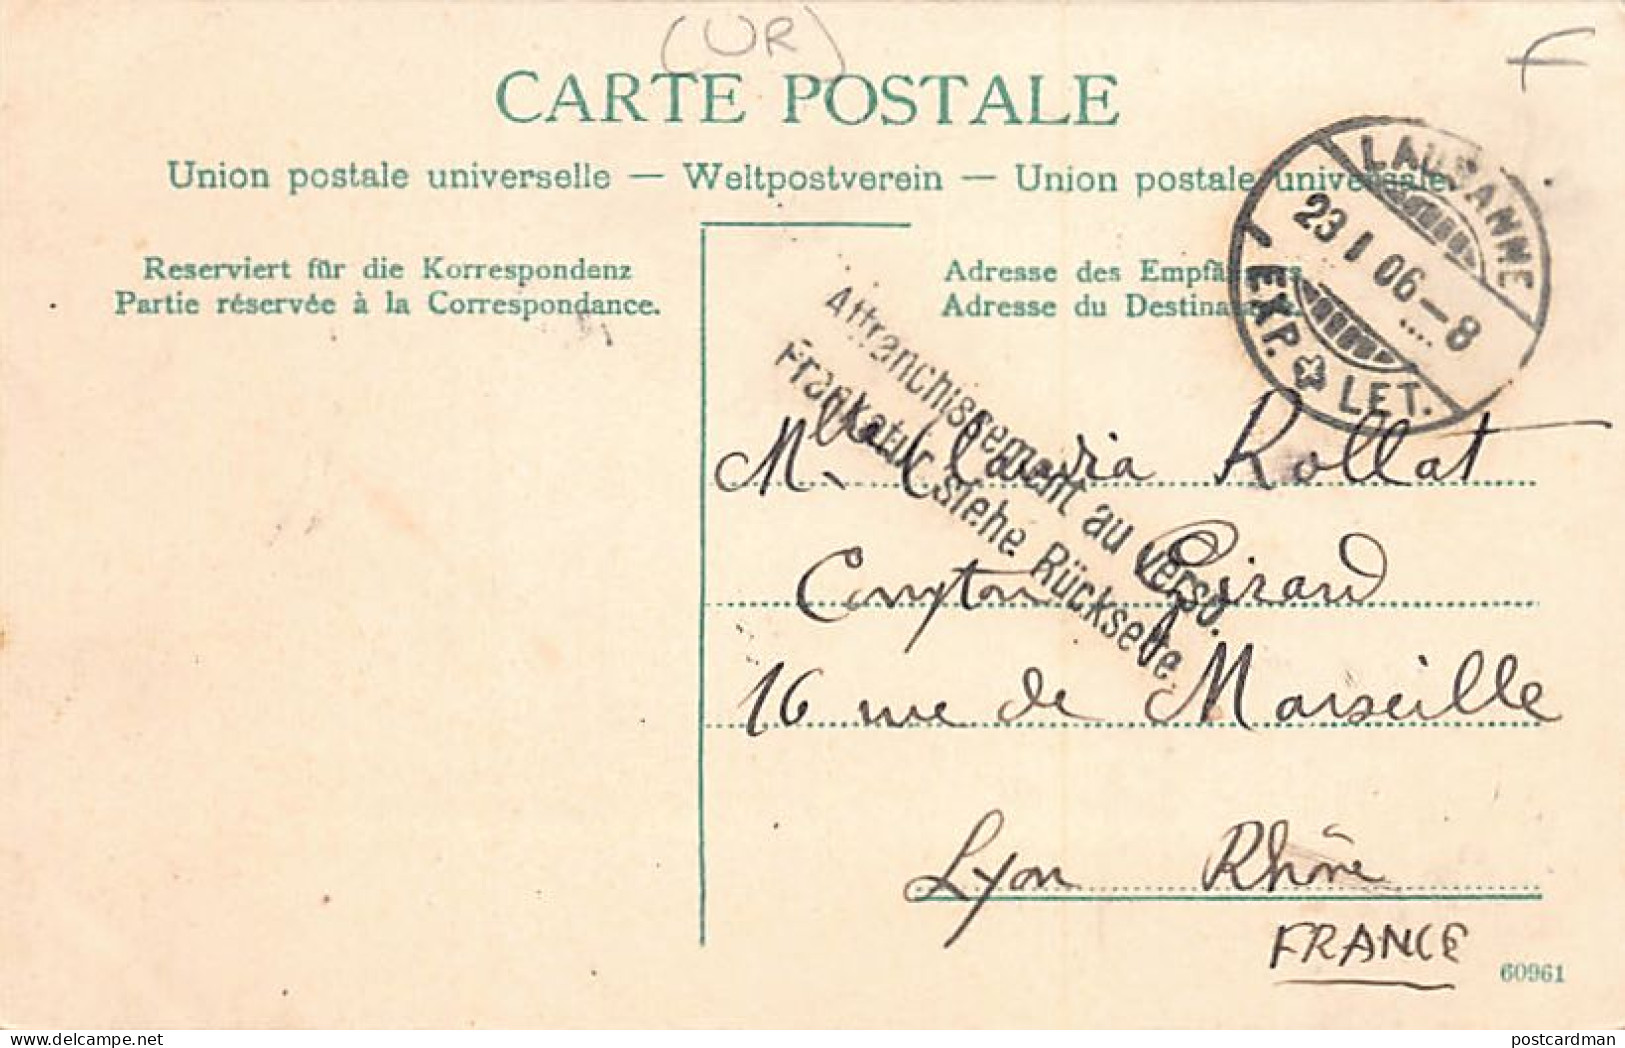 (UR)
F
CARTE POSTALE
Union postale universelle — Weltpostverein — Union postale universale
Reserviert für die Korrespondenz
Partie réservée à la Correspondance.
Adresse des Empfängers.
Adresse du Destinataire.
LAUSANNE
23 I 06 — 8
EXP. LET.
Affranchissement au verso.
Frankatur siehe Rückseite.
Mlle Claudia Rollat
Girard
16 rue de Marseille
Lyon Rhône
FRANCE
60961
postcardman